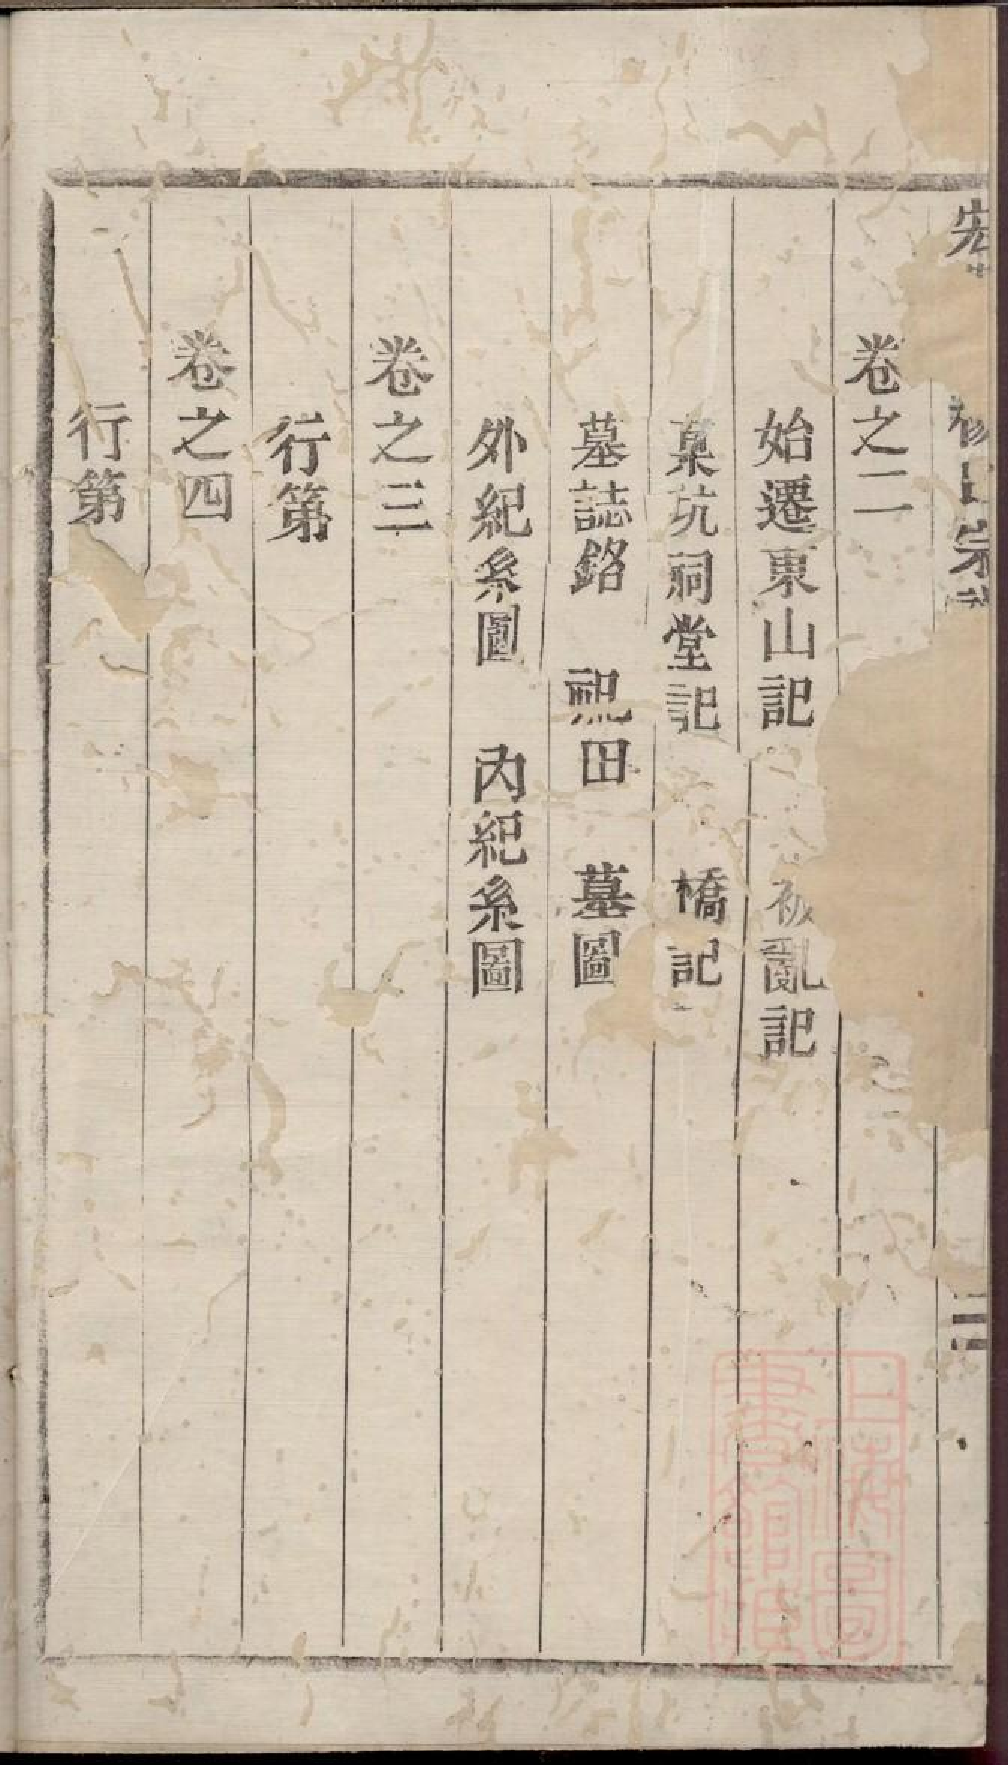 宏
宗
二
卷之二
始遷東山記 被亂記
菓坑祠堂記 橋記
墓誌銘 祀田 墓圖
外紀系圖 內紀系圖
卷之三
行第
卷之四
行第
上海圖書館藏